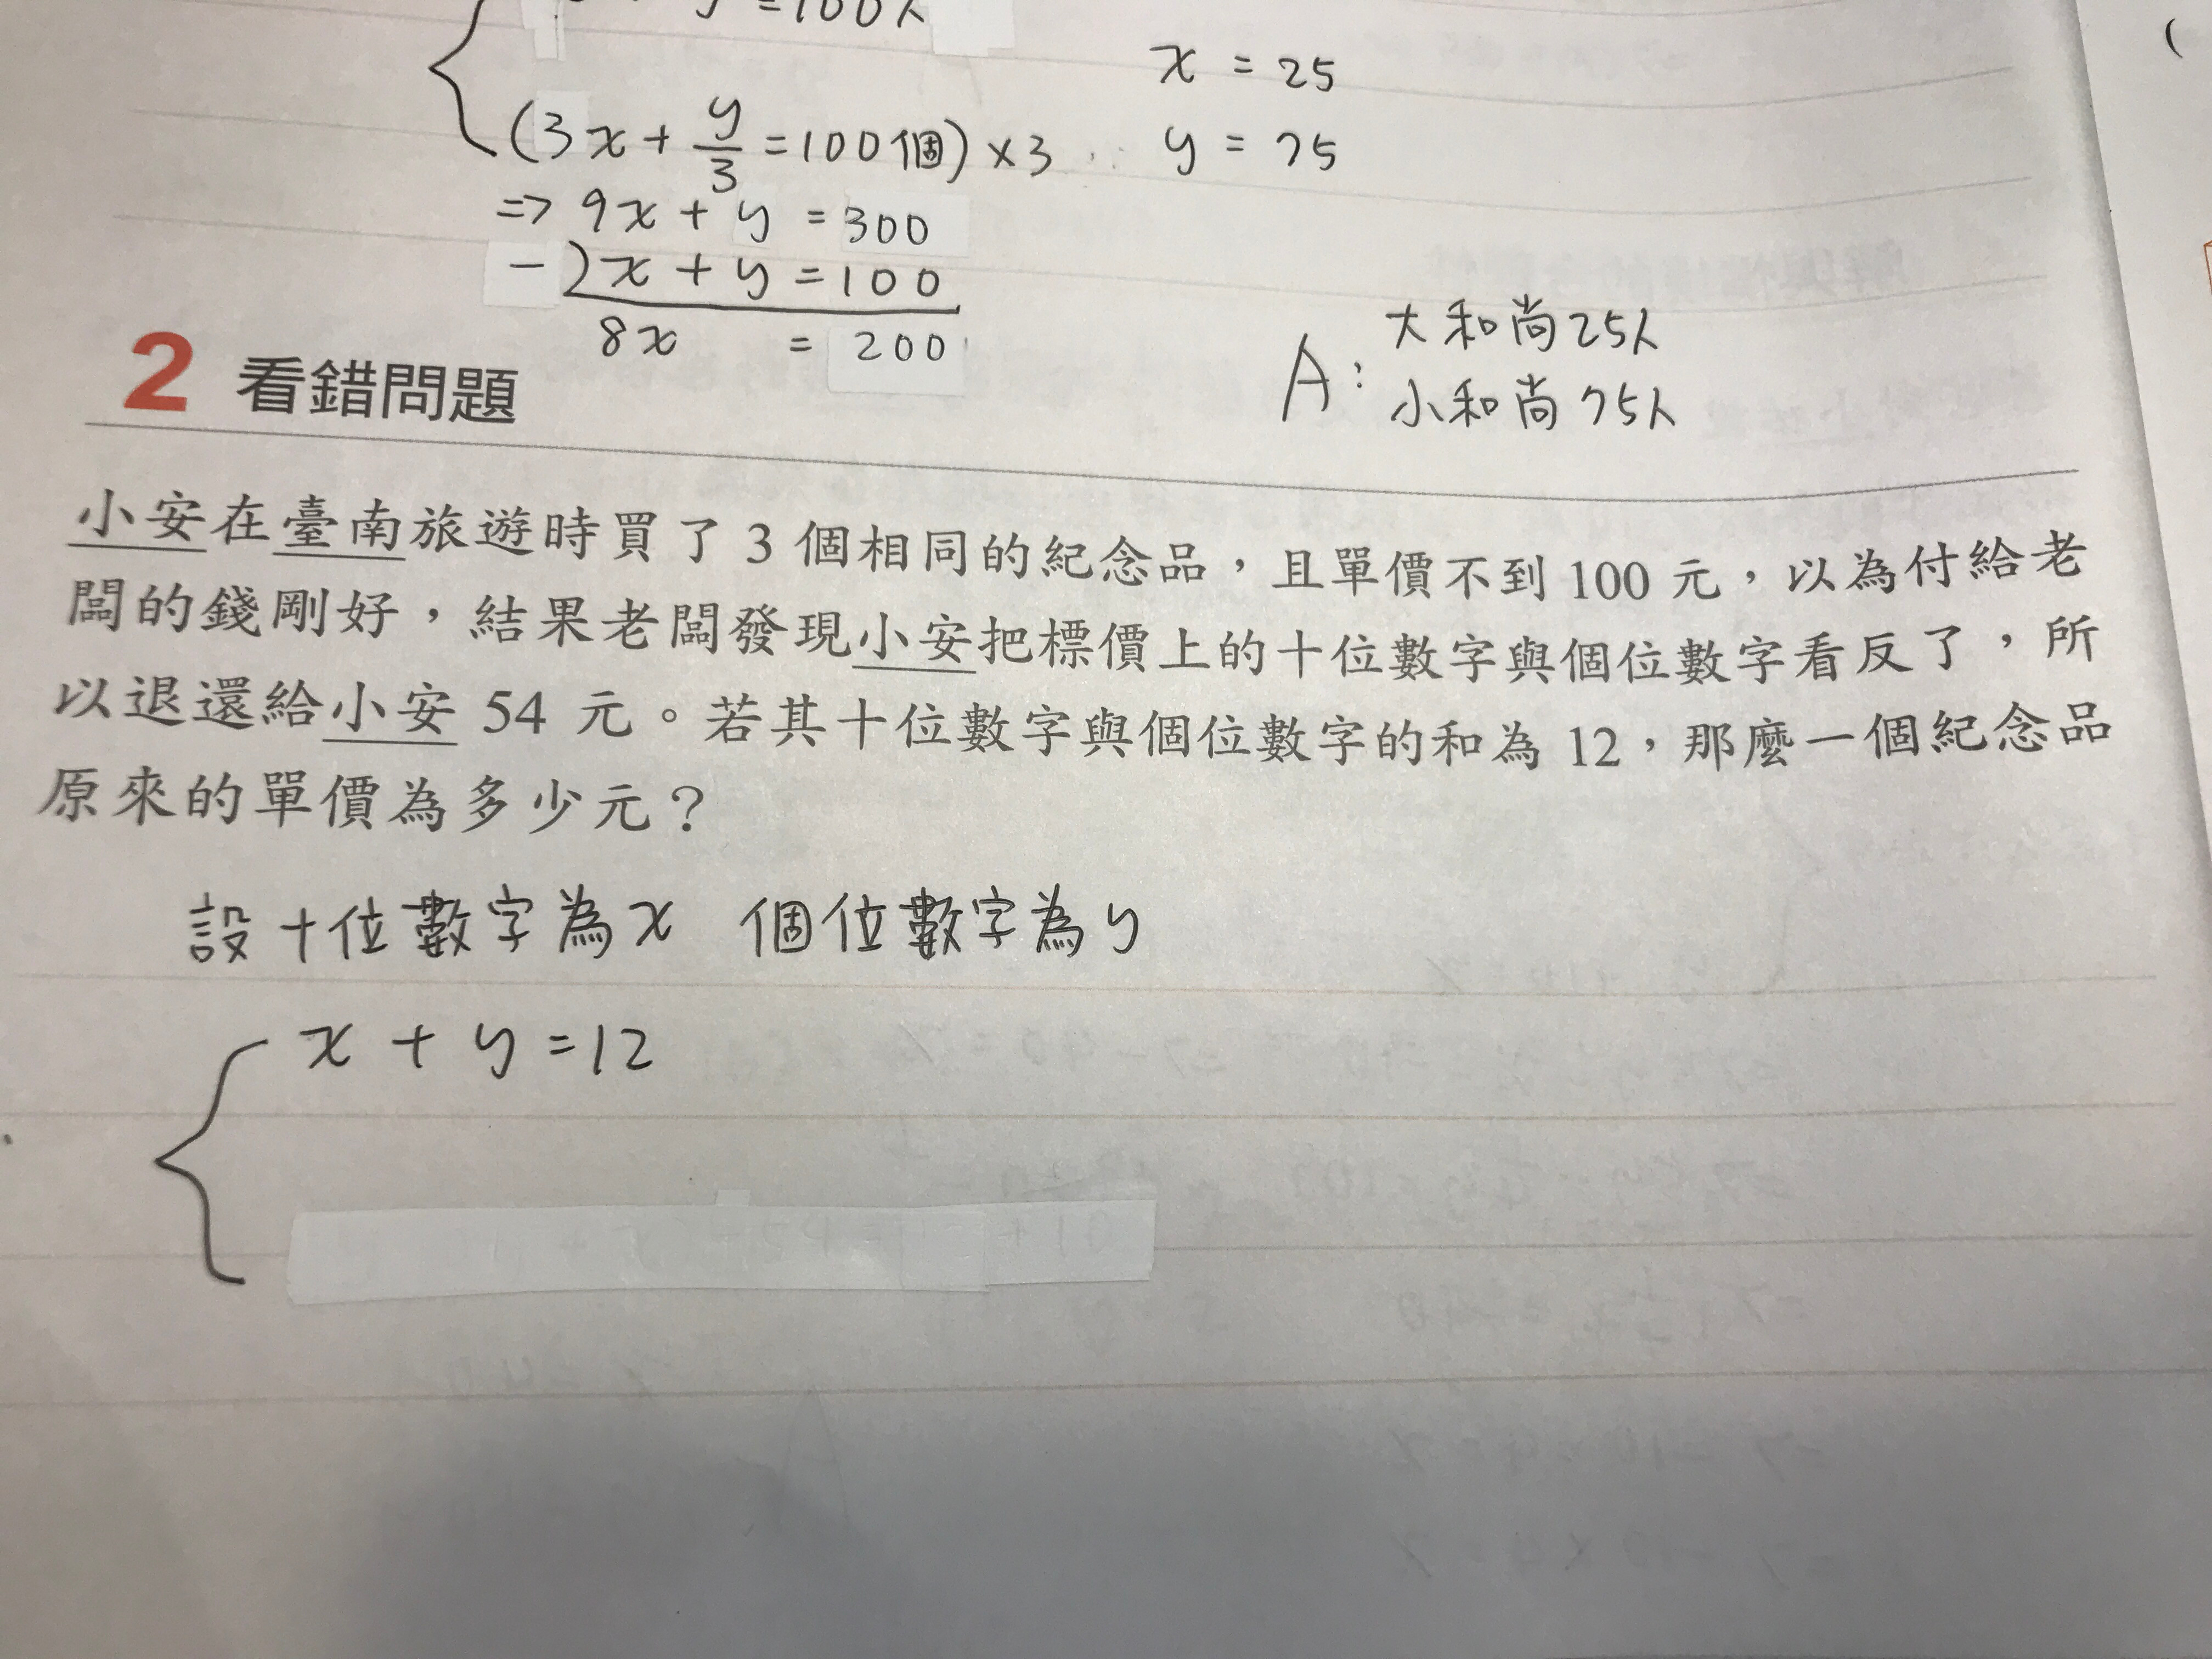 y = 100人
(3x + y/3 = 100個) × 3
x = 25
y = 75
=> 9x + y = 300
-) x + y = 100
8x = 200
A: 大和尚25人
小和尚75人
2 看錯問題
小安在臺南旅遊時買了 3 個相同的紀念品，且單價不到 100 元，以為付給老
闆的錢剛好，結果老闆發現小安把標價上的十位數字與個位數字看反了，所
以退還給小安 54 元。若其十位數字與個位數字的和為 12，那麼一個紀念品
原來的單價為多少元？
設十位數字為x 個位數字為y
x + y = 12